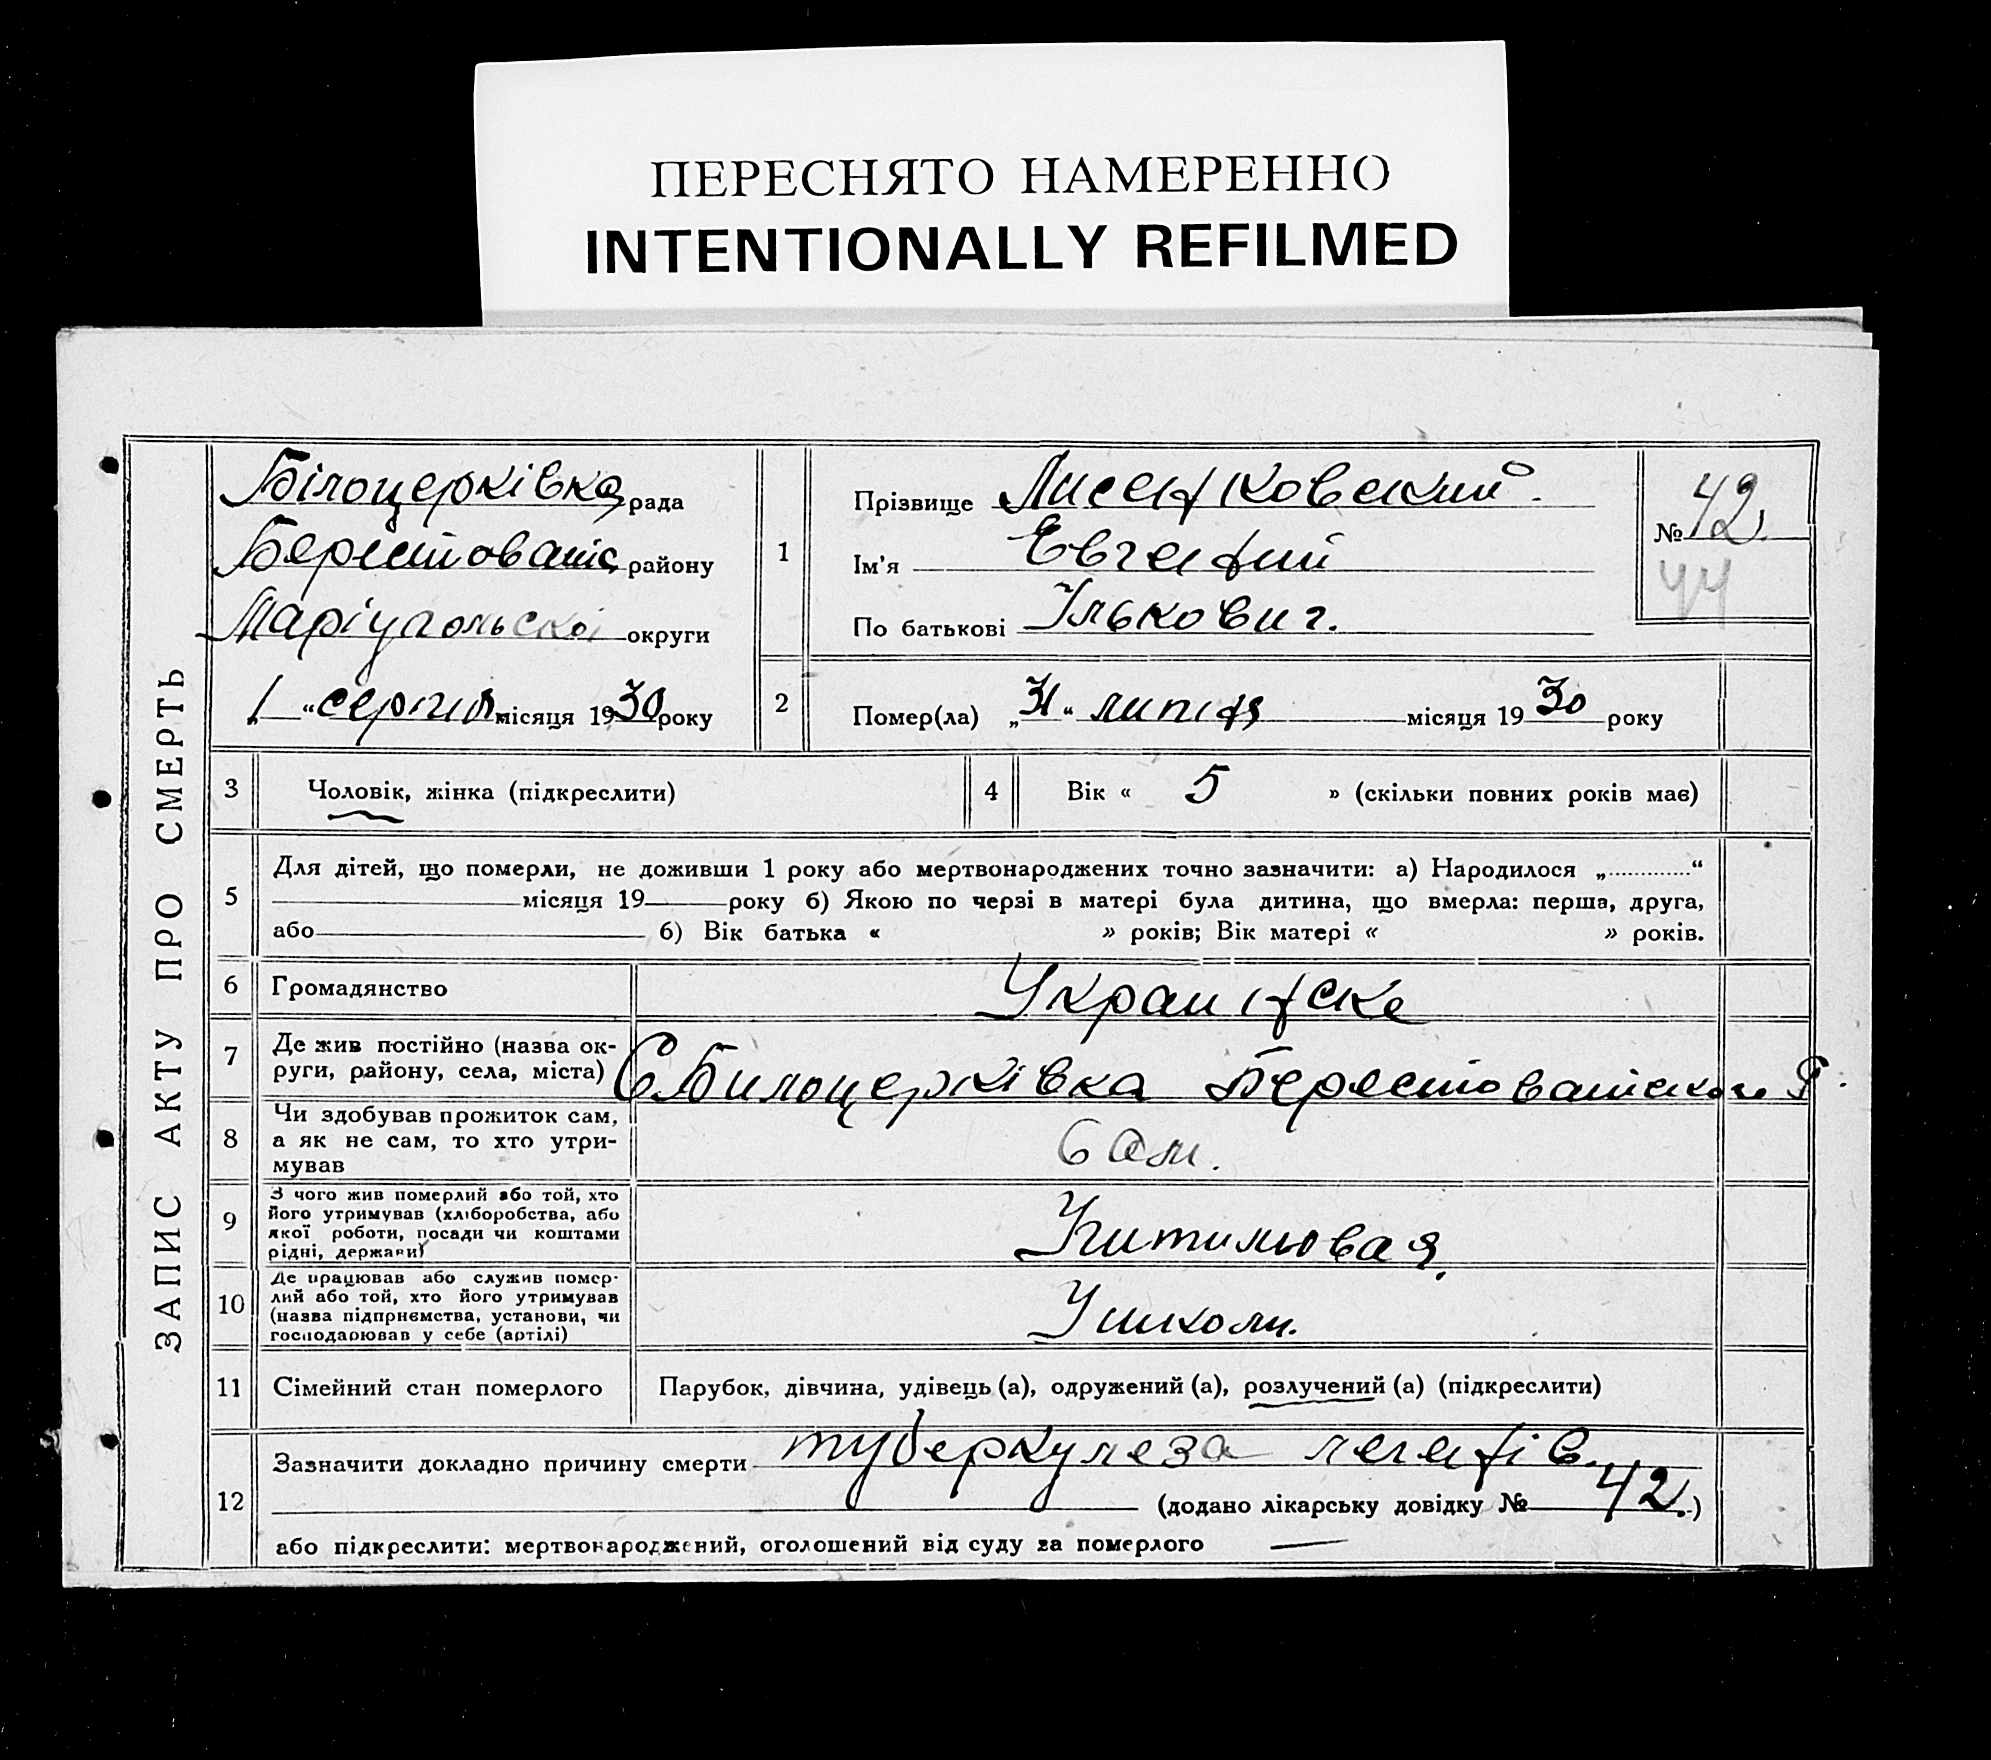 ПЕРЕСНЯТО НАМЕРЕННО
INTENTIONALLY REFILMED
ЗАПИС АКТУ ПРО СМЕРТЬ
Білоцерківка рада
району
Маріупольскої округи
1 “ серпня місяця 1930 року
1
Прізвище Лисенковский.
Ім'я Евгений
По батькові Ількович.
№ 42.
44
2
Помер(ла) „31“ липня місяця 1930 року
3
Чоловік, жінка (підкреслити)
4
Вік « 5 » (скільки повних років має)
5
Для дітей, що померли, не доживши 1 року або мертвонароджених точно зазначити: а) Народилося „ “
місяця 19 року б) Якою по черзі в матері була дитина, що вмерла: перша, друга,
або б) Вік батька « » років; Вік матері « » років.
6
Громадянство
Украинске
7
Де жив постійно (назва ок-
руги, району, села, міста)
С. Билоцерківка
8
Чи здобував прожиток сам,
а як не сам, то хто утри-
мував
Сам.
9
З чого жив померлий або той, хто
його утримував (хліборобства, або
якої роботи, посади чи коштами
рідні, держави)
10
Де працював або служив помер-
лий або той, хто його утримував
(назва підприємства, установи, чи
господарював у себе (артілі)
У школи.
11
Сімейний стан померлого
Парубок, дівчина, удівець (а), одружений (а), розлучений (а) (підкреслити)
12
Зазначити докладно причину смерти туберкулеза легенів.
(додано лікарську довідку № 42.)
або підкреслити: мертвонароджений, оголошений від суду за померлого —